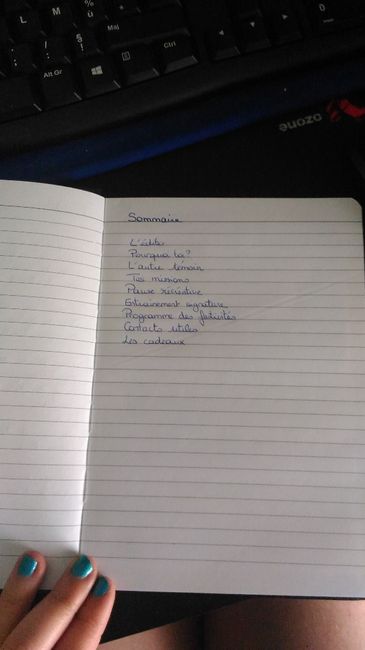 Maj
Alt Gr
Ctrl
ozone
Sommaire
L'édito
Pourquoi toi?
L'autre témoin
Tes missions
Pause récréative
Entrainement signature
Programme des festivités
Contacts utiles
Les cadeaux